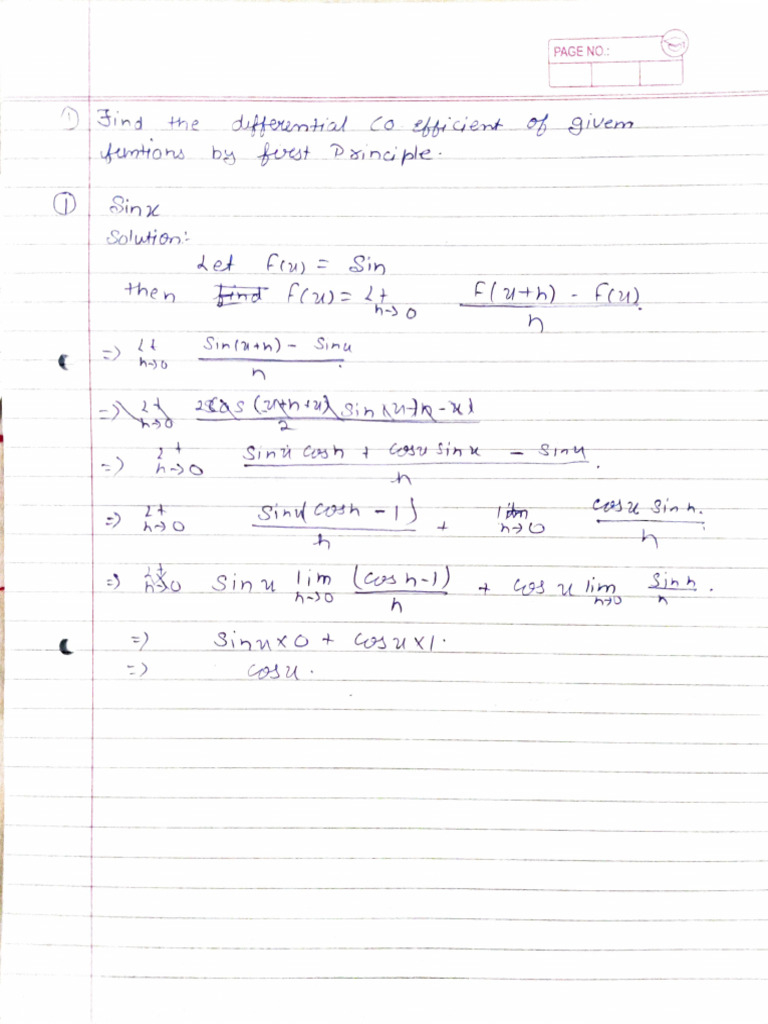 PAGE NO.:
① Find the differential co efficient of givem
funtions by first Principle.
① Sinx
Solution:-
Let f(x) = Sin
then f(x) = Lt h→0 F(x+h) - F(x) / h
=> Lt h→0 Sin(x+h) - Sinx / h
=> Lt h→0 2 cos (x+h+x) sin (x+h-x) / 2
=> Lt h→0 Sinx cosh + cosx sinx - sinx / h
=> Lt h→0 Sinx (cosh -1) / h + lim h→0 cosx sinh / h
=> Lt h→0 Sinx lim h→0 (cosh-1) / h + cosx lim h→0 Sinh / h
=> Sinx×0 + cosx×1.
=> cosx.